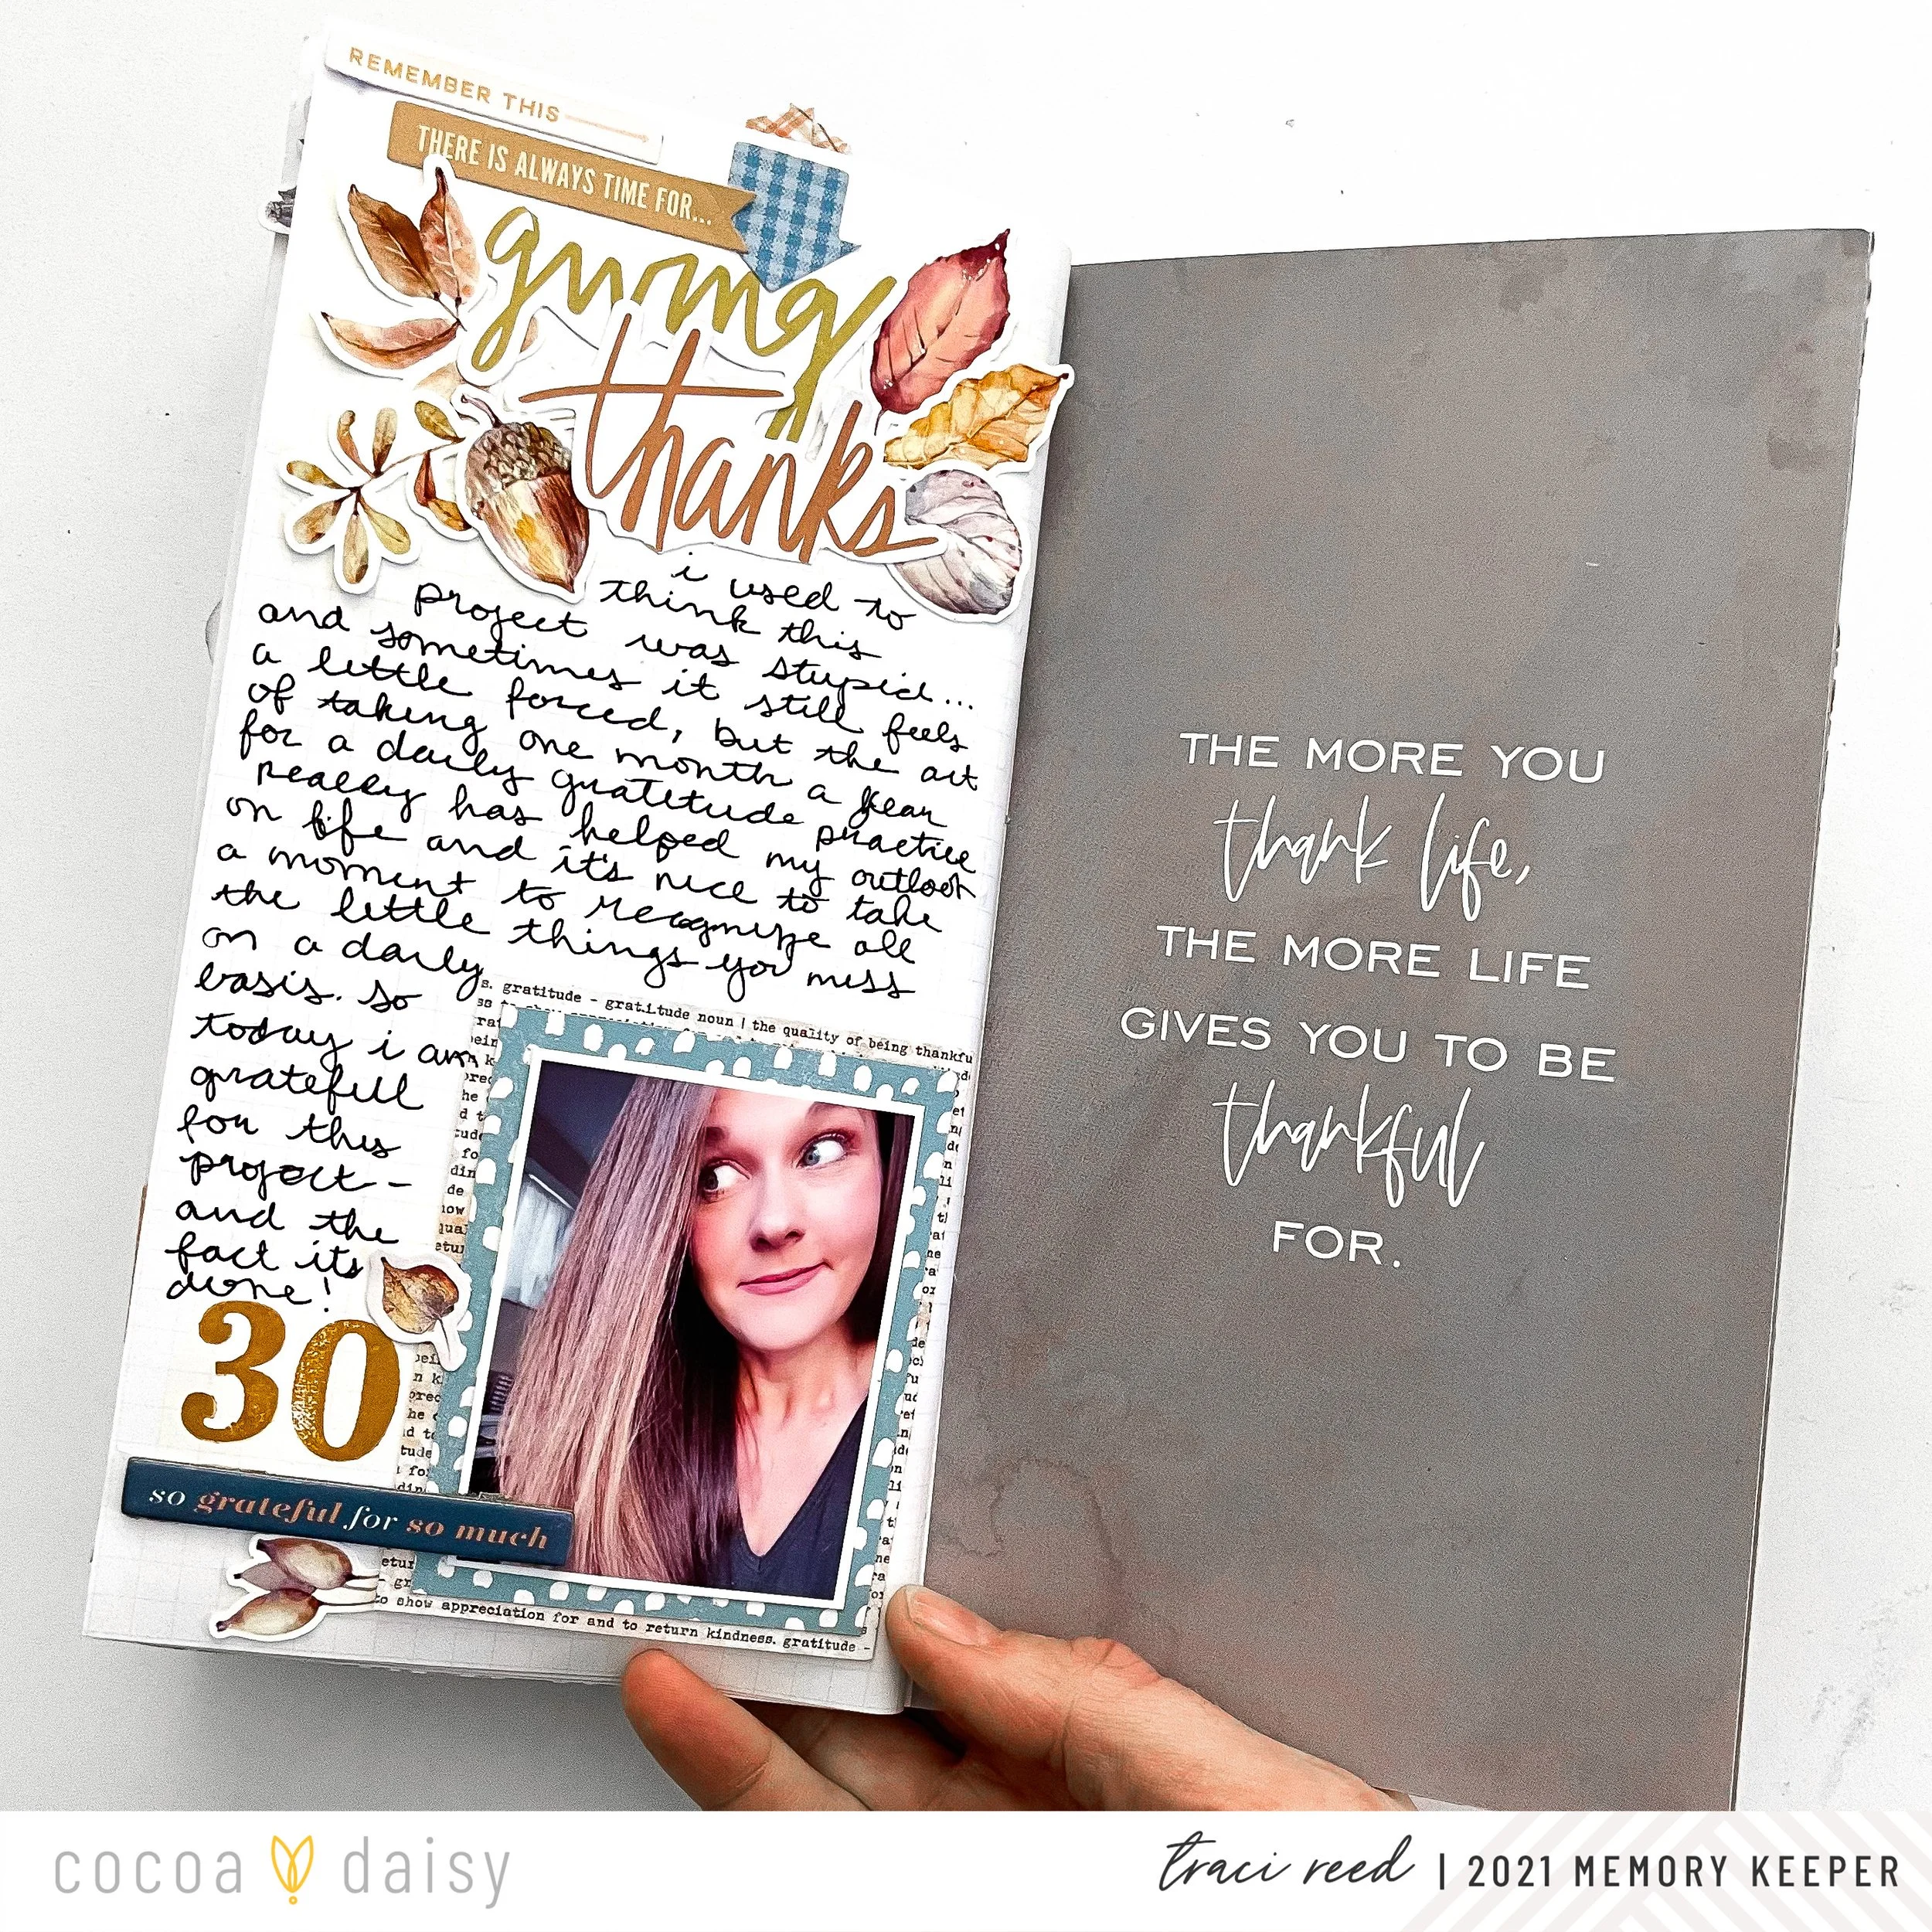 REMEMBER THIS
THERE IS ALWAYS TIME FOR...
giving
thanks
i used to
think this
project was stupid...
and sometimes it still feels
a little forced, but the act
of taking one month a year
for a daily gratitude practice
really has helped my outlook
on life and it's nice to take
a moment to recognize all
the little things you miss
on a daily
basis. so
today i am
grateful
for this
project -
and the
fact its
done!
s. gratitude - gratitude noun | the quality of being thankfu
30
so grateful for so much
to show appreciation for and to return kindness. gratitude -
THE MORE YOU
thank life,
THE MORE LIFE
GIVES YOU TO BE
thankful
FOR.
cocoa daisy
traci reed | 2021 MEMORY KEEPER